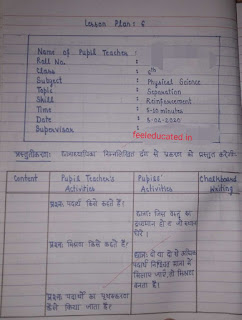 Lesson Plan: 6
Name of Pupil Teacher :
Roll No. :
Class : 6th
Subject : Physical Science
Topic : Separation
Skill : Reinforcement
Time : 5-10 minutes
Date : 5-02-2020
Supervisor :
feeleducated.in
प्रस्तुतीकरण: छात्राध्यापिका निम्नलिखित ढंग से प्रकरण को प्रस्तुत करेगी:
Content
Pupil Teacher's Activities
Pupils' Activities
Chalkboard Writing
प्रश्न: पदार्थ किसे कहते हैं?
छात्र: जिस वस्तु का
द्रव्यमान हो व जो स्थान
घेरे।
प्रश्न: मिश्रण किसे कहते हैं?
छात्र: दो या दो से अधिक
पदार्थ निश्चित मात्रा में
मिलाए जाएँ, तो मिश्रण
बनता है।
प्रश्न: पदार्थों का पृथक्करण
कैसे किया जाता है?